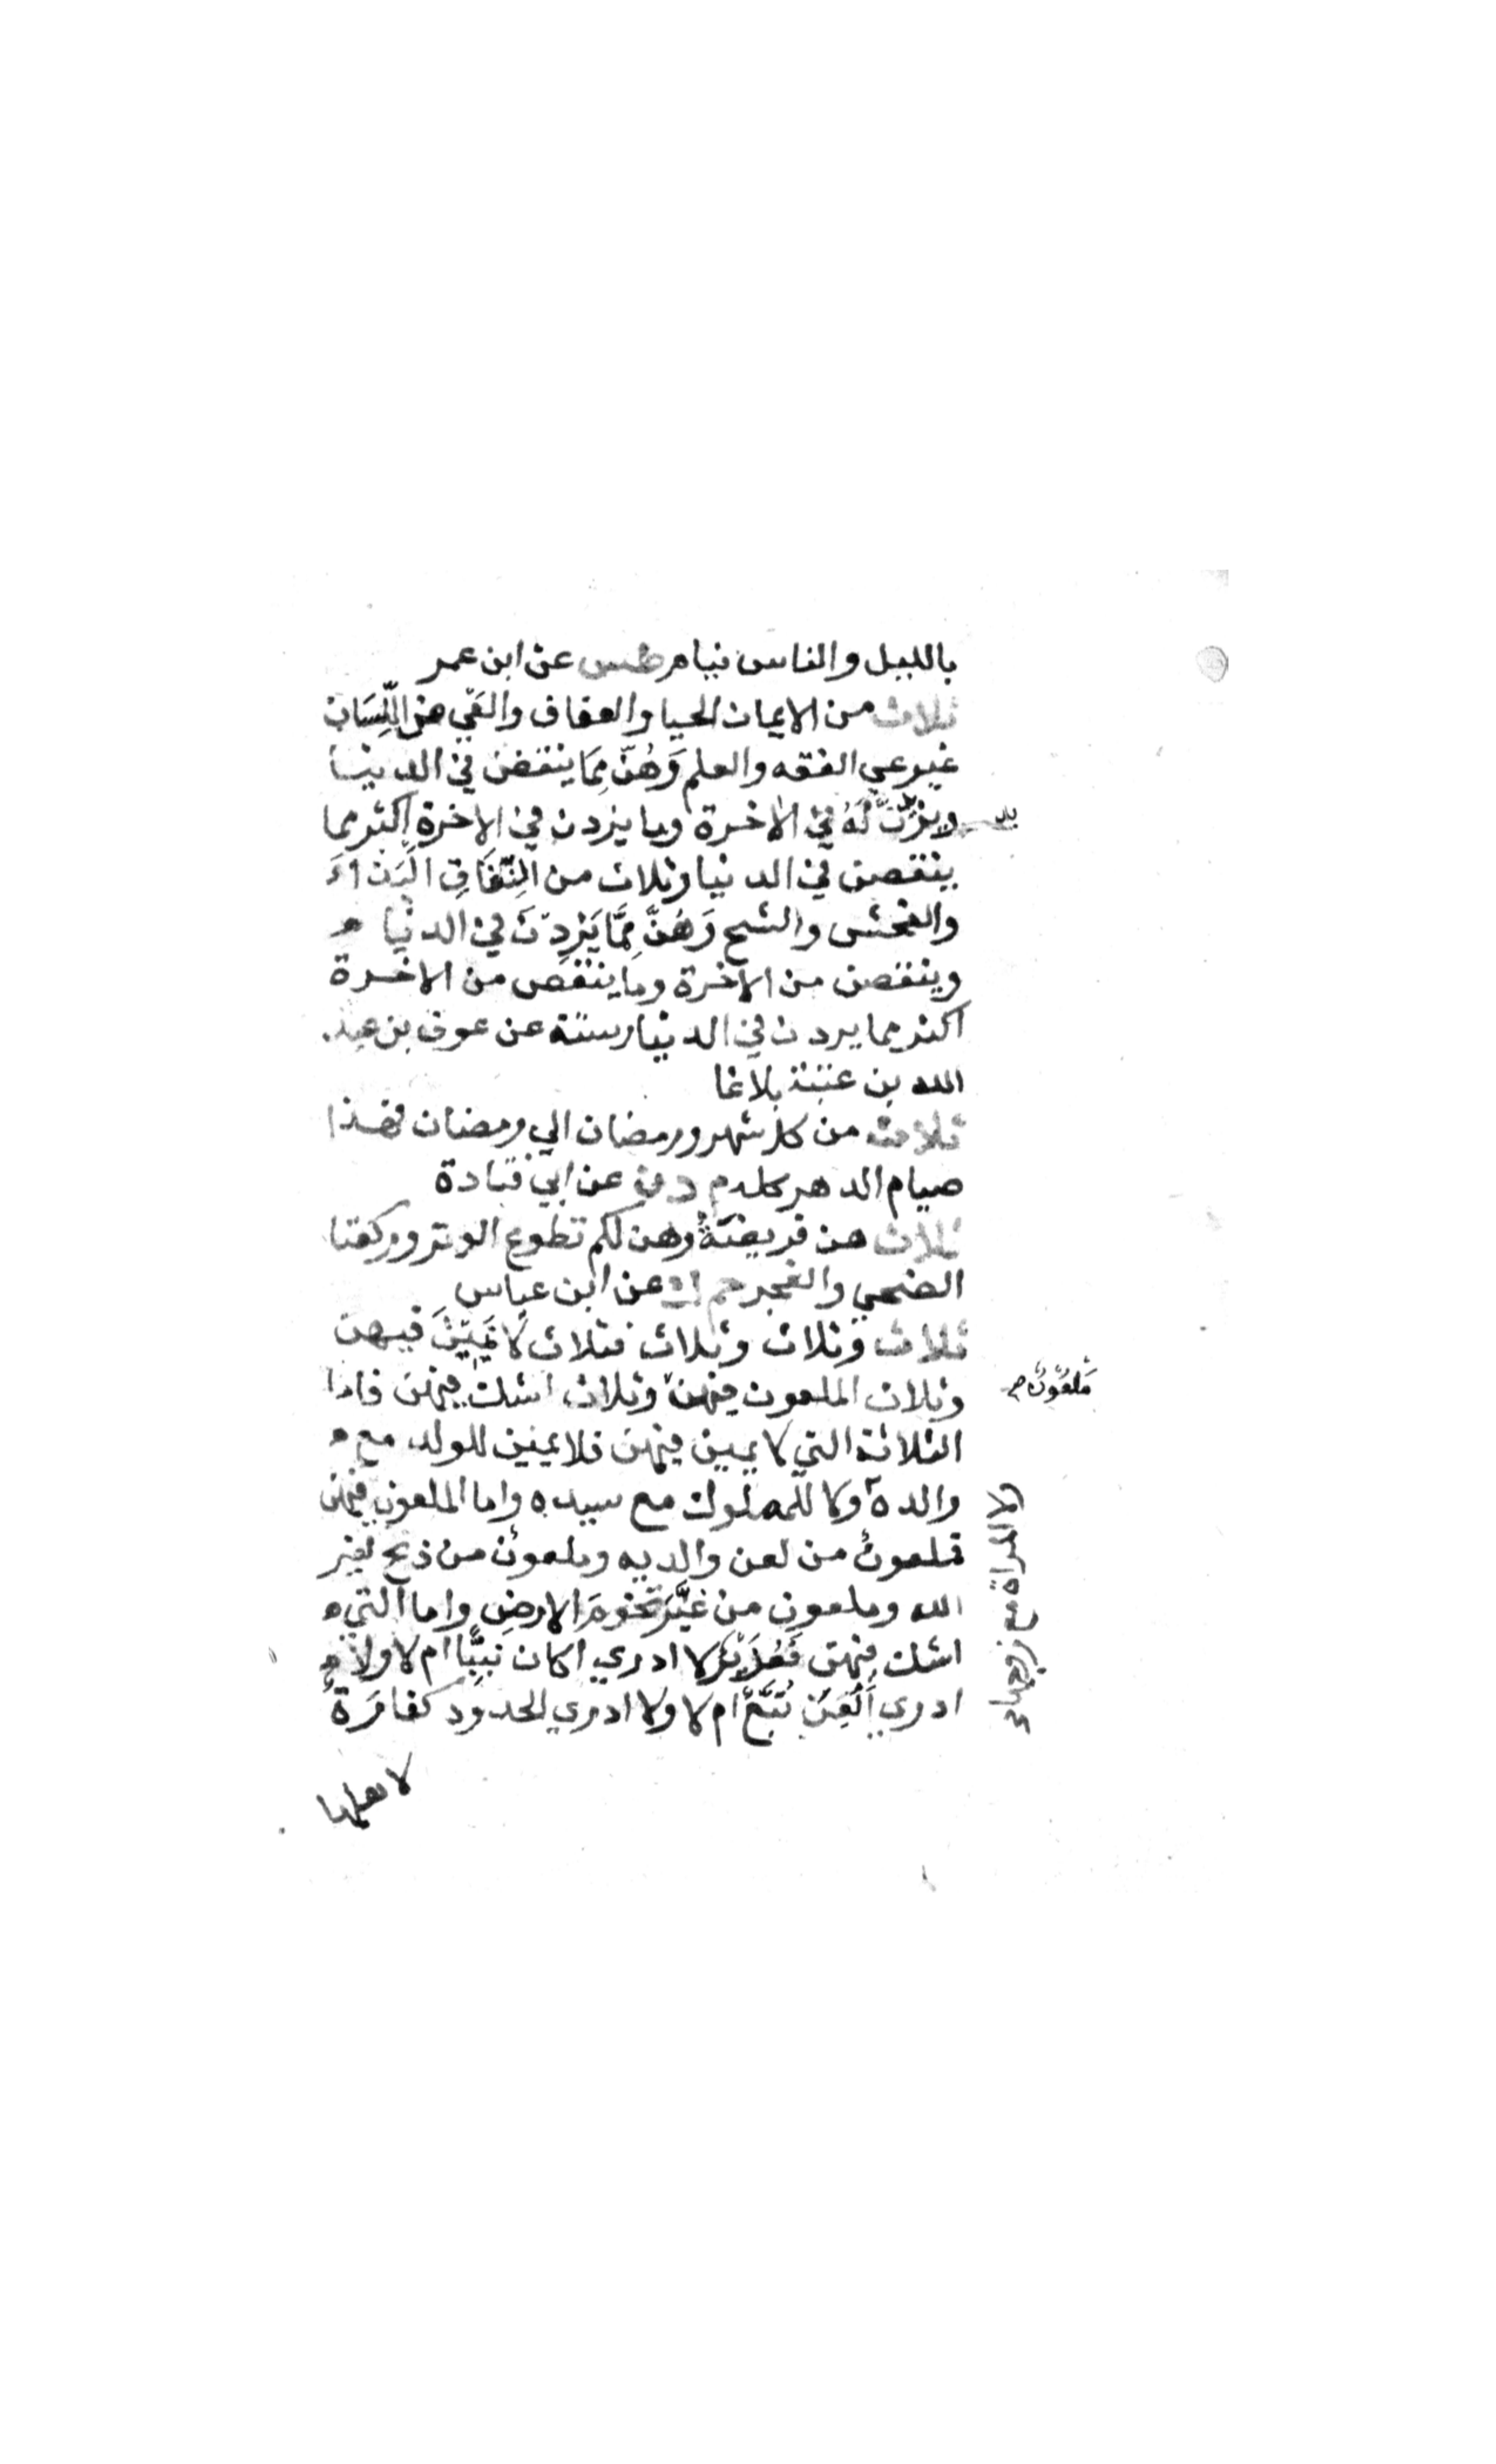 بالليل والناس نيام طس عن ابن عمر
ثلاث من الايمان الحيا والعفاف والعَيّ عن اللِّسَان
غير عي الفقه والعلم وَهُنّ مِمَا ينقصن في الدنيا
ويزِدْنَ لَهُ في الاخرة وما يزدن في الاخرة اكثر مما
ينقصن في الدنيا وثلاث من النِّفَاقِ البَذاءَ
والفحش والشح وَهُنَّ مِمَّا يَزِدْنَ في الدنيا
وينقصن من الاخرة وما ينقصن من الاخرة
اكثر مما يردن في الدنيا رسته عن عون بن عبد
الله بن عتبة بلاغا
ثلاث من كل شهر ورمضان الي رمضان فهذا
صيام الدهر كله م د ن عن ابي قتادة
ثلاث هن فريضة وهن لكم تطوع الوتر وركعتا
الضحي والفجر حم ك عن ابن عباس
ثلاث وثلاث وثلاث فثلاث لا يَمِيْنَ فيهن
وثلاث الملعون فيهن وثلاث اشك فيهن فاما
الثلاثة التي لا يمين فيهن فلا يمين للولد مع
والده ولا للمملوك مع سيده واما الملعون فيهن
فملعونٌ من لعن والديه وملعون من ذبح لغير
الله وملعون من غيَّرَ تخومَ الارضِ واما التي
اشك فيهن فعُزَيْرٌ لا ادري اكان نبيًّا ام لا ولا
ادري أَلُعِنَ تُبَّعٌ ام لا ولا ادري الحدود كفارَةٌ
مَلعُوْنٌ
ولا للمراة مع زوجها
لاهلها